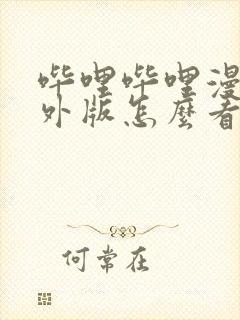 哔哩哔哩漫
外版怎麼看
何常在